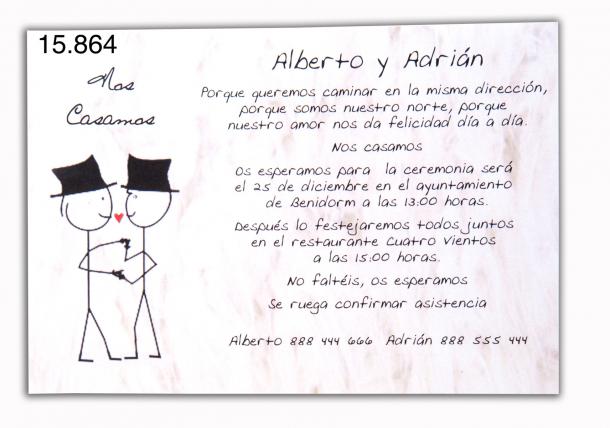 15.864
Nos
Casamos
Alberto y Adrián
Porque queremos caminar en la misma dirección,
porque somos nuestro norte, porque
nuestro amor nos da felicidad día a día.
Nos casamos
Os esperamos para la ceremonia será
el 25 de diciembre en el ayuntamiento
de Benidorm a las 13:00 horas.
Después lo festejaremos todos juntos
en el restaurante Cuatro Vientos
a las 15:00 horas.
No faltéis, os esperamos
Se ruega confirmar asistencia
Alberto 888 444 666 Adrián 888 555 444